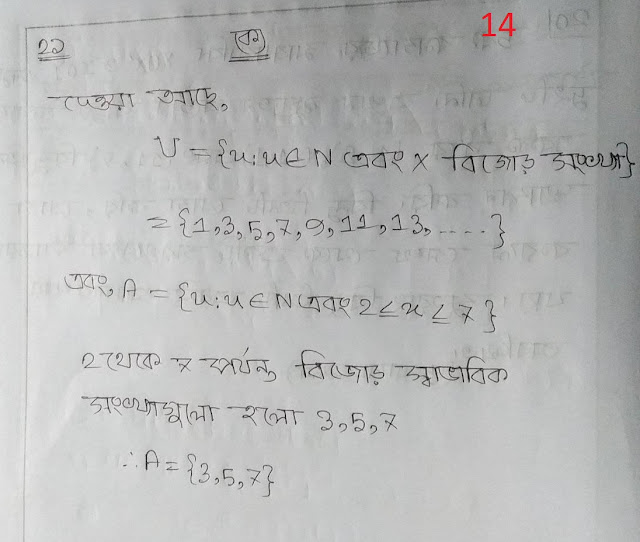 14
২১ (ক)
দেওয়া আছে,
U = {x : x ∈ N এবং x বিজোড় সংখ্যা}
= {1, 3, 5, 7, 9, 11, 13, .....}
এবং, A = {x : x ∈ N এবং 2 ≤ x ≤ 7}
2 থেকে 7 পর্যন্ত বিজোড় স্বাভাবিক
সংখ্যাগুলো হলো 3, 5, 7
∴ A = {3, 5, 7}